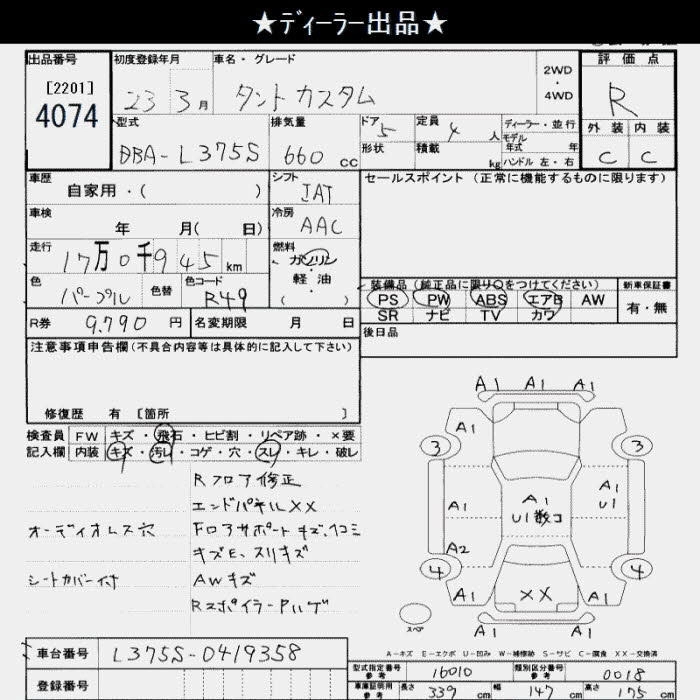 ★ディーラー出品★
出品番号
[2201]
4074
初度登録年月
23 3月
車名・グレード
タント カスタム
2WD
・
4WD
評価点
R
外装 内装
C C
型式
DBA-L375S
排気量
660 cc
ドア 5
形状
定員 4 人
積載 kg
ディーラー・並行
モデル
年式 年
ハンドル 左・右
車歴
自家用・( )
シフト
IAT
セールスポイント(正常に機能するものに限ります)
車検
年 月( 日)
冷房
AAC
走行
17万0千945 km
燃料
ガソリン
・
軽油
( ・ )
色
パープル
色替
色コード
R49
装備品(純正品に限り○をつけてください)
新車保証書
PS PW ABS エアB AW
SR ナビ TV カワ
有・無
R券 9,790 円
名変期限 月 日
後日品
注意事項申告欄(不具合内容等は具体的に記入して下さい)
修復歴 有 [箇所 ]
検査員
記入欄
FW キズ・飛石・ヒビ割・リペア跡・×要
内装 キズ・汚レ・コゲ・穴・スレ・キレ・破レ
Rフロア修正
エンドパネルXX
オーディオレス穴
Fロアサポートキズ、凹ミ
キズE、スリキズ
シートカバー付
AWキズ
Rスポイラーハルゲ
A1 A1 A1
A1
3 3
A1
A1
U1数コ
A1
U1
A1
A2
4 4
XX
A1 A1
A1 A1
スペア
A-キズ E-エクボ U-凹み W-補修跡 S-サビ C-腐食 XX-交換済
車台番号 L375S-0419358
登録番号
型式指定番号
参考
16010
類別区分番号
参考
0018
車庫証明用
参考
長さ 339 cm
幅 147 cm
高さ 175 cm